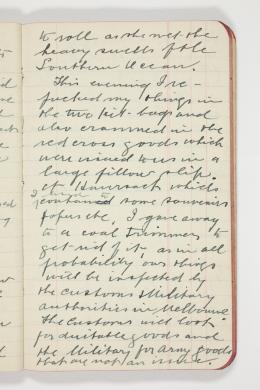 to roll as she met the
heavy swells of the
Southern Ocean.
This evening I re-
packed my things in
the two kit-bags and
also crammed in the
red cross goods which
were issued to us in a
large pillow slip.
A Haversack which
I had contained some souvenirs
of pipes etc, I gave away
to a coal trimmer to
get rid of it as in all
probability our things
will be inspected by
the customs & Military
authorities in Melbourne
The Customs will look
for dutiable goods and
the Military for army goods
that are not an issue.